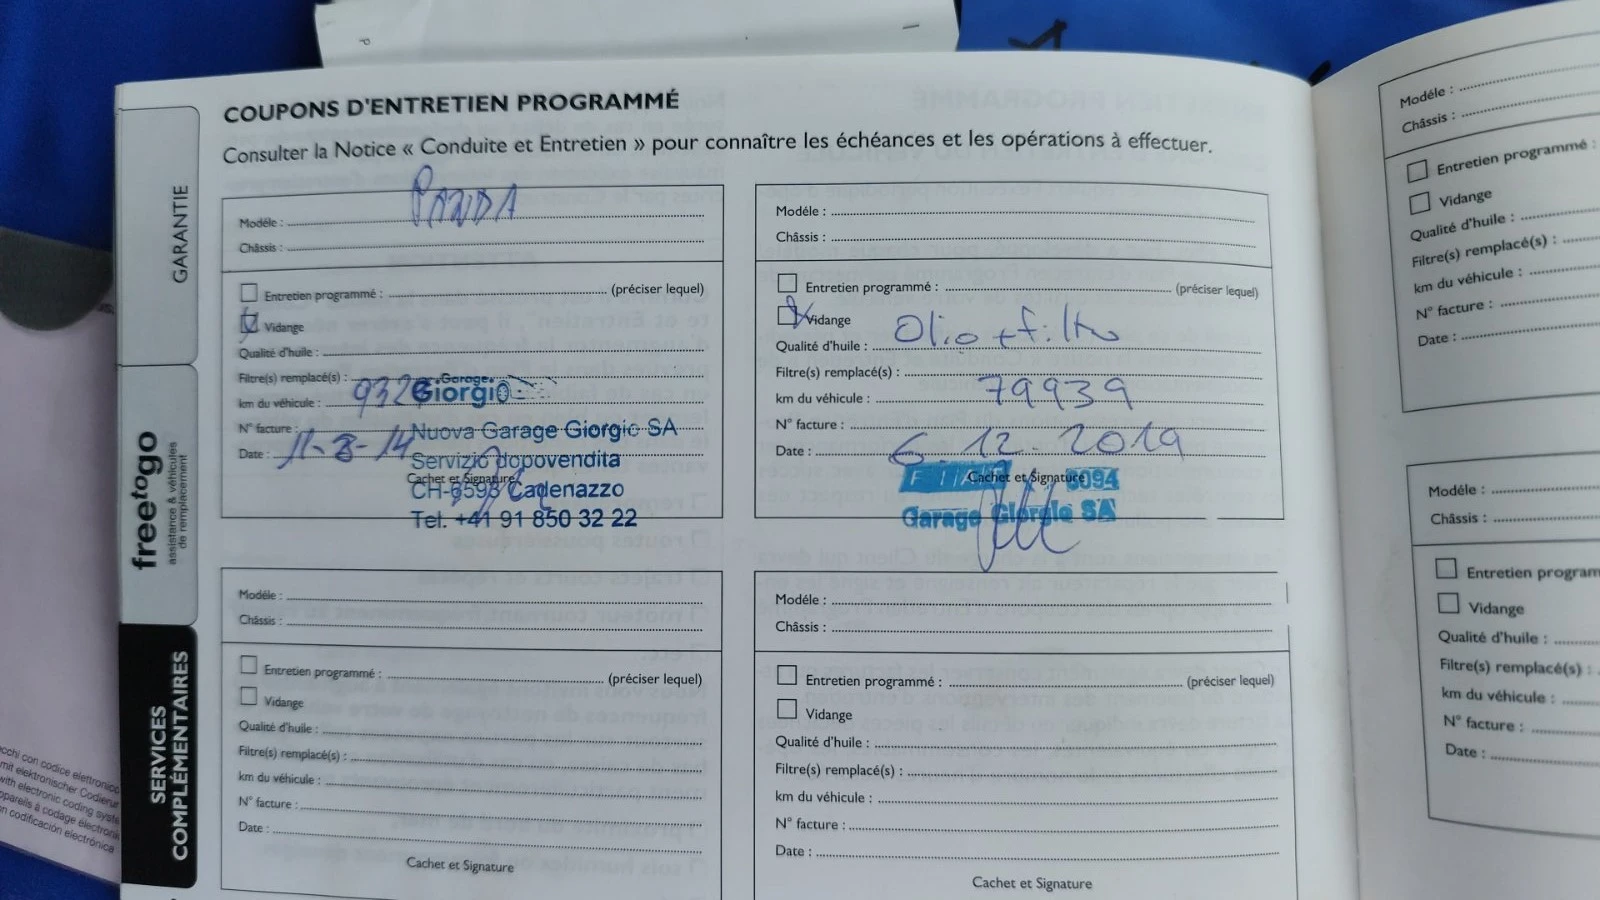 COUPONS D'ENTRETIEN PROGRAMMÉ
Consulter la Notice « Conduite et Entretien » pour connaître les échéances et les opérations à effectuer.
GARANTIE
freetogo
assistance & véhicules
de remplacement
SERVICES
COMPLÉMENTAIRES
Modéle : PANDA
Châssis :
Entretien programmé : (préciser lequel)
Vidange
Qualité d'huile :
Filtre(s) remplacé(s) :
km du véhicule : 932
N° facture :
Date : 11-8-14
Cachet et Signature
Garage
Giorgio
Nuova Garage Giorgio SA
Servizio dopovendita
CH-6593 Cadenazzo
Tel. +41 91 850 32 22
Modéle :
Châssis :
Entretien programmé : (préciser lequel)
Vidange
Qualité d'huile : Olio + filtro
Filtre(s) remplacé(s) :
km du véhicule : 79939
N° facture :
Date : 6.12.2019
Cachet et Signature
Garage Giorgio SA
Modéle :
Châssis :
Entretien programmé : (préciser lequel)
Vidange
Qualité d'huile :
Filtre(s) remplacé(s) :
km du véhicule :
N° facture :
Date :
Cachet et Signature
Modéle :
Châssis :
Entretien programmé : (préciser lequel)
Vidange
Qualité d'huile :
Filtre(s) remplacé(s) :
km du véhicule :
N° facture :
Date :
Cachet et Signature
Modéle :
Châssis :
Entretien programmé :
Vidange
Qualité d'huile :
Filtre(s) remplacé(s) :
km du véhicule :
N° facture :
Date :
Modéle :
Châssis :
Entretien program
Vidange
Qualité d'huile :
Filtre(s) remplacé(s) :
km du véhicule :
N° facture :
Date :
con codice elettronico
mit elektronischer Codierun
with electronic coding syste
à codage électroni
codificación electrónica